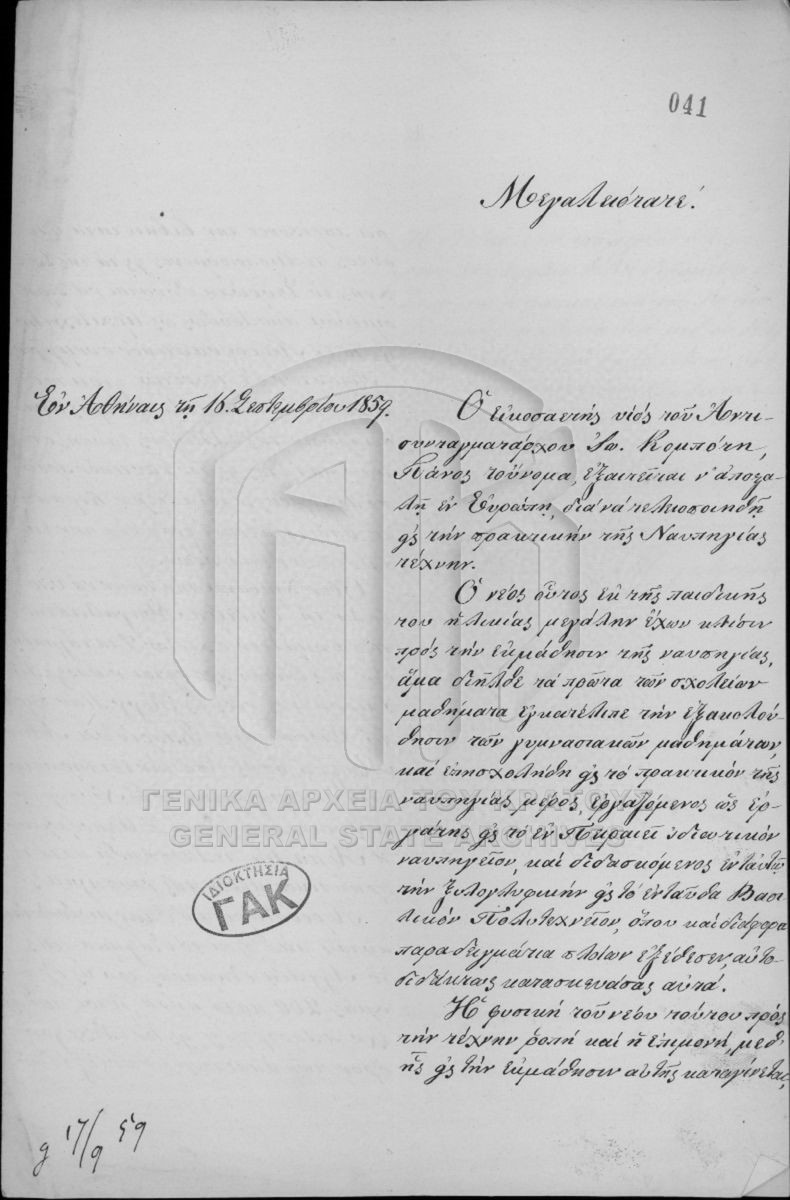 041
Μεγαλειότατε!
Ἐν Ἀθήναις τῇ 16. Σεπτεμβρίου 1859.
Ὁ εἰκοσαετὴς υἱὸς τοῦ Ἀντι
συνταγματάρχου Ἰω. Κομπότη,
Πάνος τοὔνομα, ἐξαιτεῖται ν' ἀποστα
λῇ ἐν Εὐρώπῃ, διὰ νὰ τελειοποιηθῇ
εἰς τὴν πρακτικὴν τῆς Ναυπηγίας
τέχνην.
Ὁ νέος οὗτος ἐκ τῆς παιδικῆς
του ἡλικίας μεγάλην ἔχων κλίσιν
πρὸς τὴν ἐκμάθησιν τῆς ναυπηγίας,
ἅμα διῆλθε τὰ πρῶτα τῶν σχολείων
μαθήματα ἐγκατέλιπε τὴν ἐξακολού
θησιν τῶν γυμνασιακῶν μαθημάτων,
καὶ ἐπησχολήθη εἰς τὸ πρακτικὸν τῆς
ναυπηγίας μέρος, ἐργαζόμενος ὡς ἐρ
γάτης εἰς τὸ ἐν Πειραιεῖ ἰδιωτικὸν
ναυπηγεῖον, καὶ διδασκόμενος ἐνταὐτῷ
τὴν ξυλογλυφικὴν εἰς τὸ ἐνταῦθα Βασι
λικὸν Πολυτεχνεῖον, ὅπου καὶ διάφορα
παραδείγματα πλοίων ἐξέθεσεν, αὐτο
διδάκτως κατασκευάσας αὐτά.
Ἡ φυσικὴ τοῦ νέου τούτου πρὸς
τὴν τέχνην ῥοπὴ καὶ ἡ ἐπιμονὴ, μεθ'
ἧς εἰς τὴν ἐκμάθησιν αὐτῆς καταγίνεται,
17/9 59
ΓΕΝΙΚΑ ΑΡΧΕΙΑ ΤΟΥ ΚΡΑΤΟΥΣ
GENERAL STATE ARCHIVES
ΙΔΙΟΚΤΗΣΙΑ
ΓΑΚ